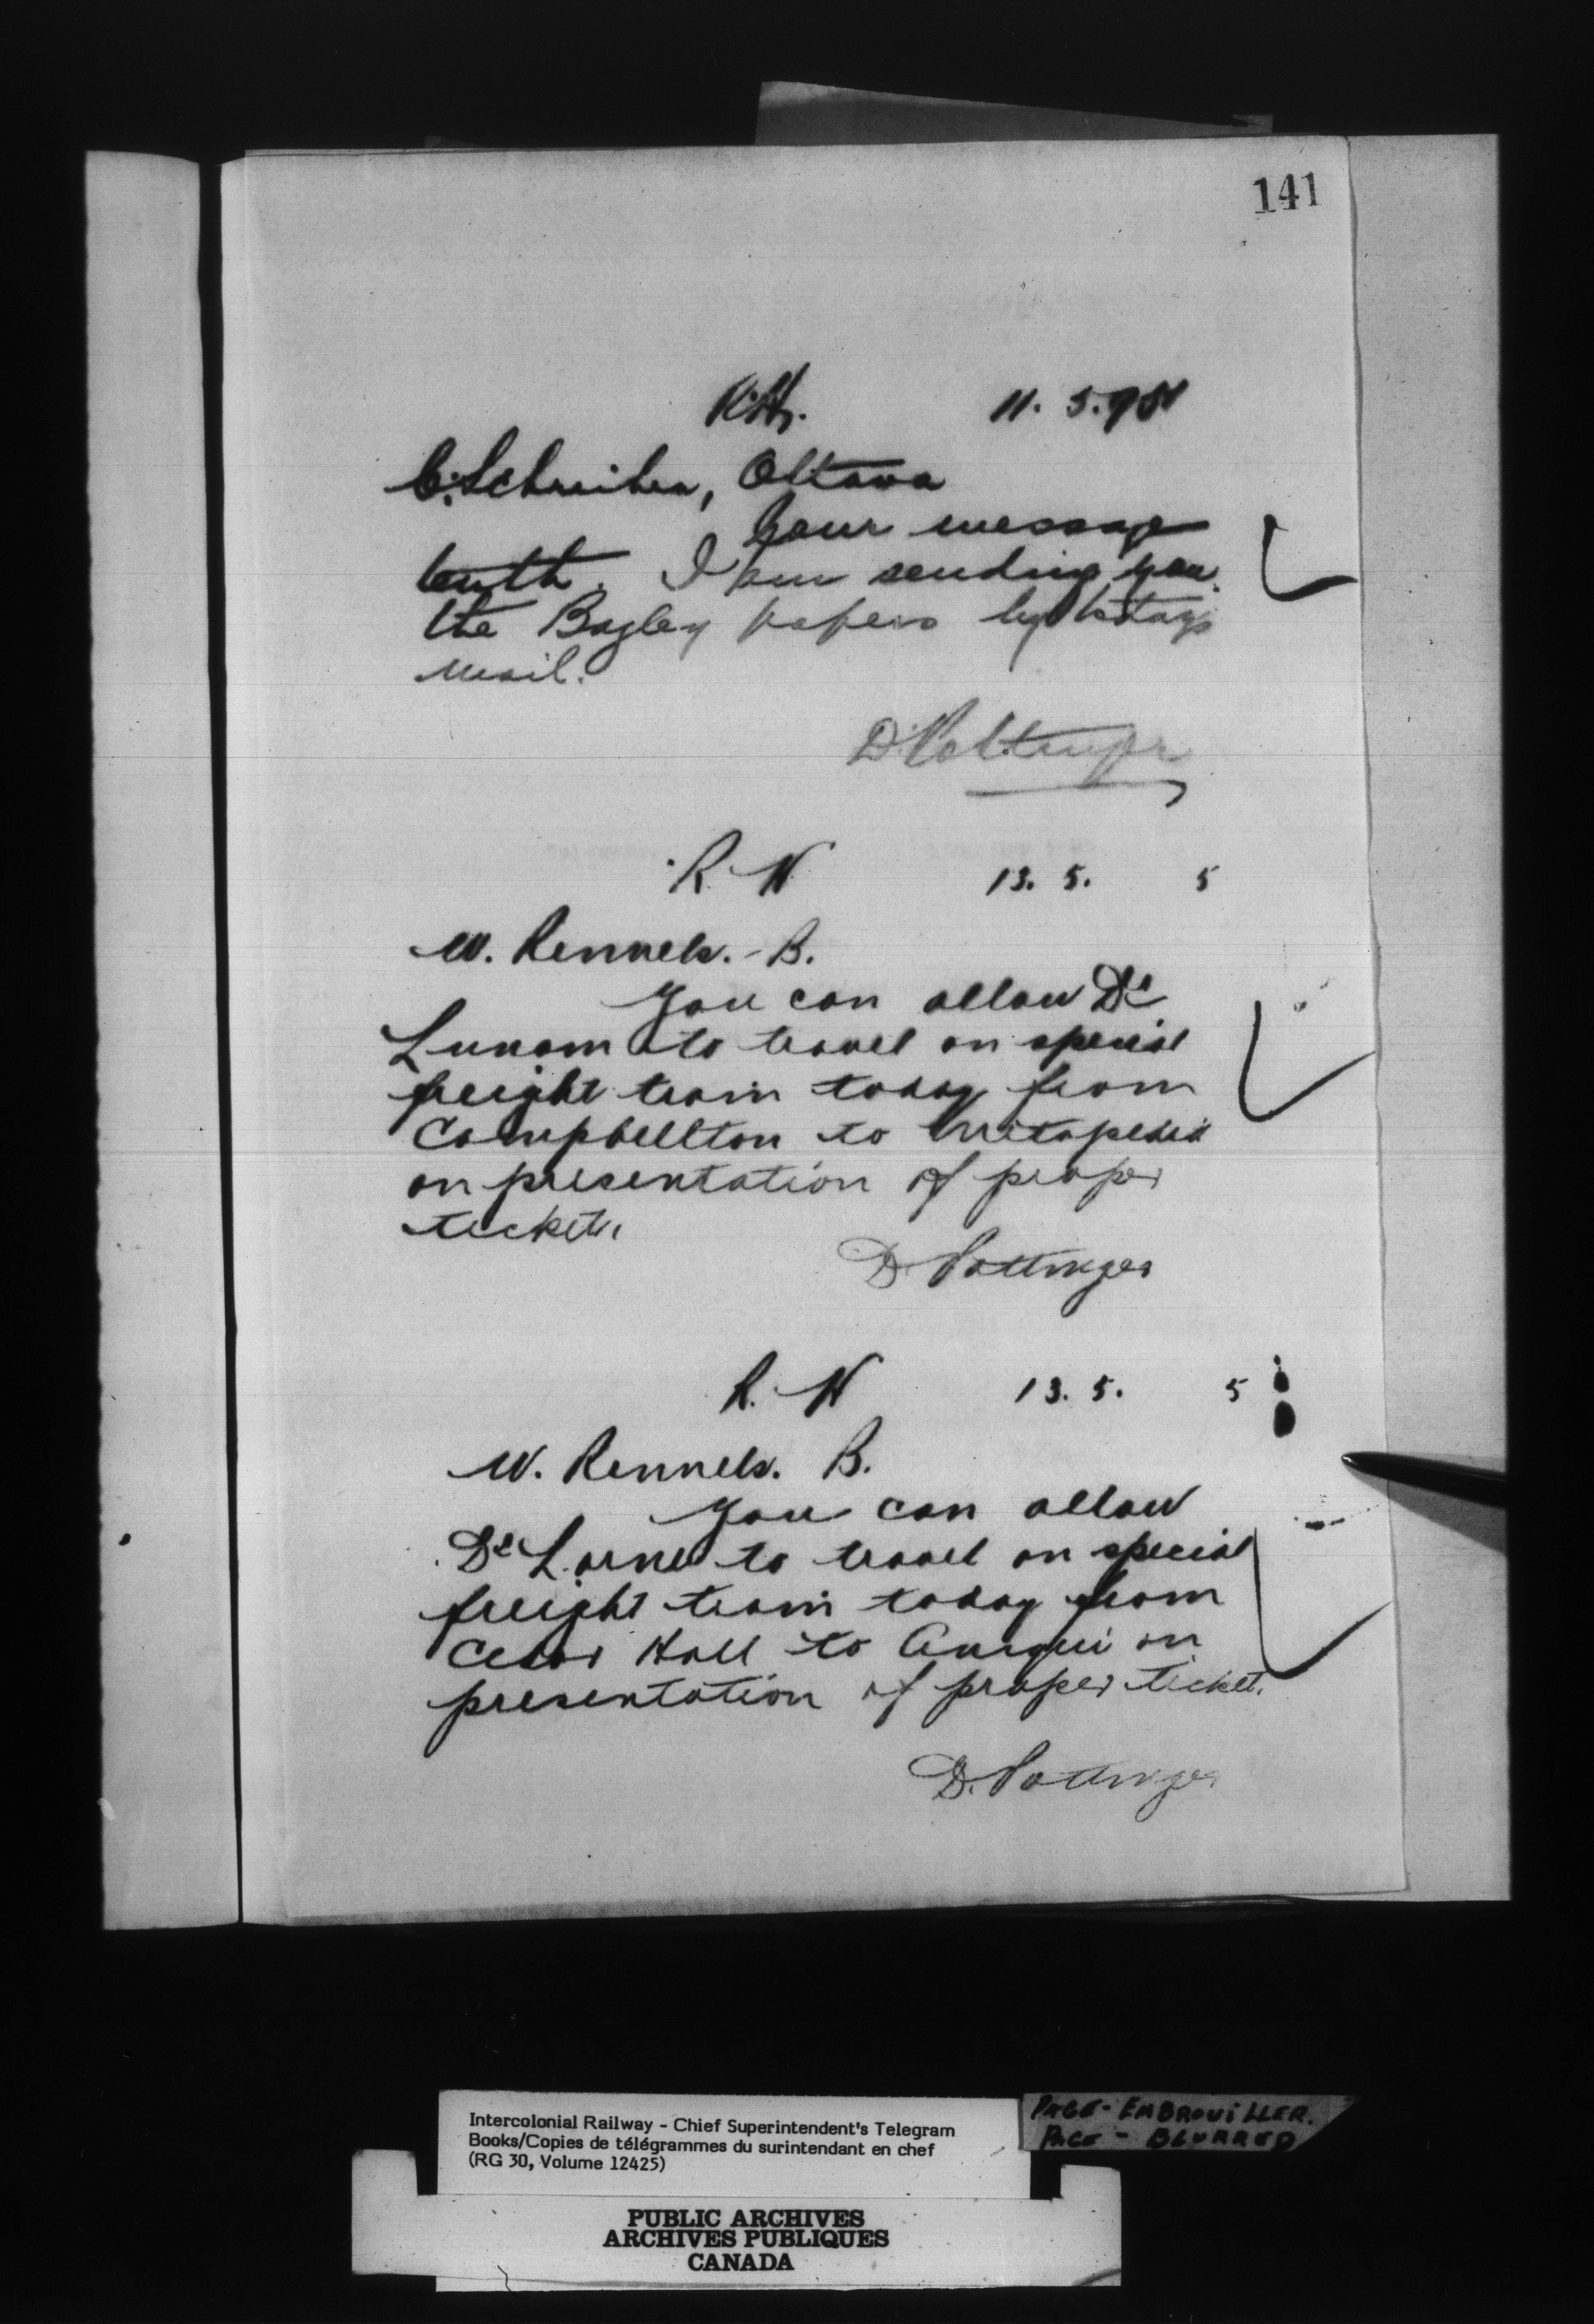 141
11. 5.
C. Schreiber, Ottawa
Your message
tenth. I am sending you
the Bagley papers by todays
mail.
D. Pottinger
R. H 13. 5. 5
W. Rennels. B.
You can allow Dr
Lunam to travel on special
freight train today from
Campbellton to Metapedia
on presentation of proper
ticket.
D. Pottinger
R. H 13. 5. 5
W. Rennels. B.
You can allow
Dr Lorne to travel on special
freight train today from
Cedar Hall to Amqui on
presentation of proper ticket.
D. Pottinger
Intercolonial Railway - Chief Superintendent's Telegram
Books/Copies de télégrammes du surintendant en chef
(RG 30, Volume 12425)
PAGE - EMBROUILLER.
PAGE - BLURRED
PUBLIC ARCHIVES
ARCHIVES PUBLIQUES
CANADA